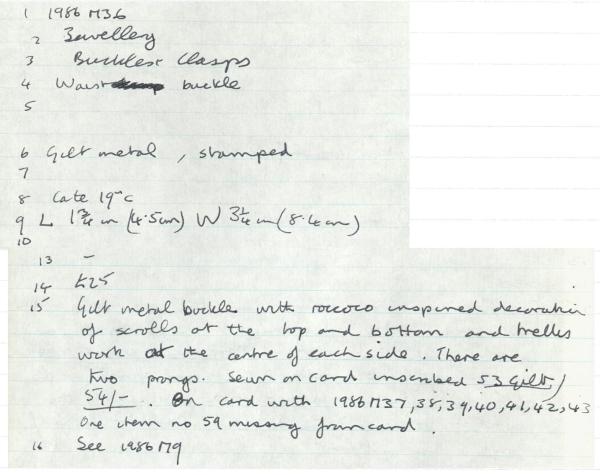 1 1986 M36
2 Jewellery
3 Buckles + Clasps
4 Waist buckle
5
6 Gilt metal, stamped
7
8 Late 19th c
9 L 1¾ in (4.5cm) W 3¼ in (8.4cm)
10
13 -
14 £25
15 Gilt metal buckle with rococo inspired decoration
of scrolls at the top and bottom and trellis
work at the centre of each side. There are
two prongs. Sewn on card inscribed 53 Gilt /
54/-. On card with 1986 M37, 38, 39, 40, 41, 42, 43
One item no 59 missing from card.
16 See 1986 M9